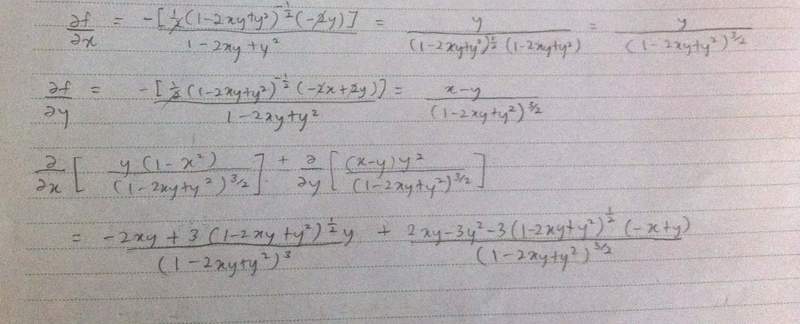 ∂f/∂x = -[½(1-2xy+y²)^(-½)(-2y)]/(1-2xy+y²) = y/((1-2xy+y²)^½(1-2xy+y²)) = y/(1-2xy+y²)^(3/2)
∂f/∂y = -[½(1-2xy+y²)^(-½)(-2x+2y)]/(1-2xy+y²) = (x-y)/(1-2xy+y²)^(3/2)
∂/∂x [y(1-x²)/(1-2xy+y²)^(3/2)] + ∂/∂y [(x-y)y²/(1-2xy+y²)^(3/2)]
= (-2xy+3(1-2xy+y²)^½y)/(1-2xy+y²)³ + (2xy-3y²-3(1-2xy+y²)^½(-x+y))/(1-2xy+y²)^(3/2)